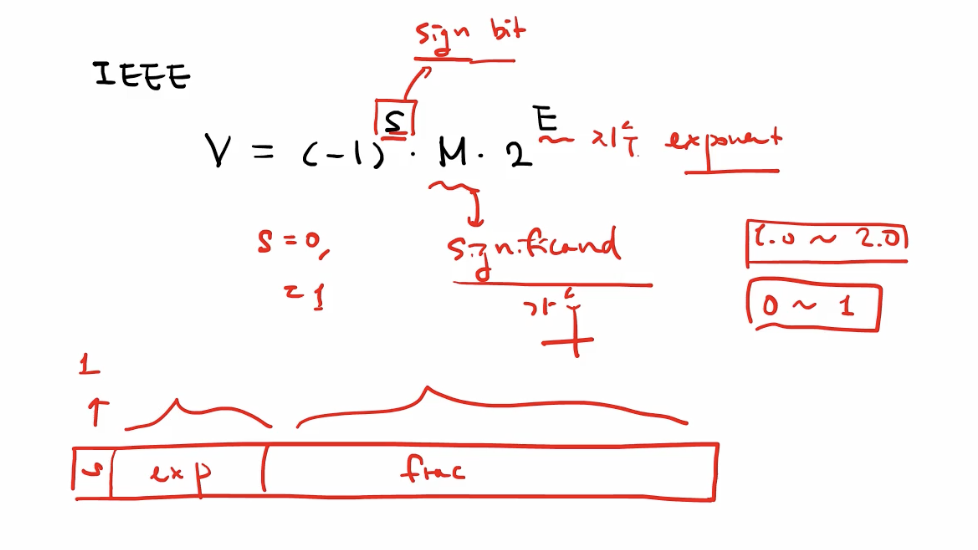 sign bit
IEEE
V = (-1)^S · M · 2^E 지수 exponent
S = 0,
= 1
significand
가수
1.0 ~ 2.0
0 ~ 1
1
s exp frac